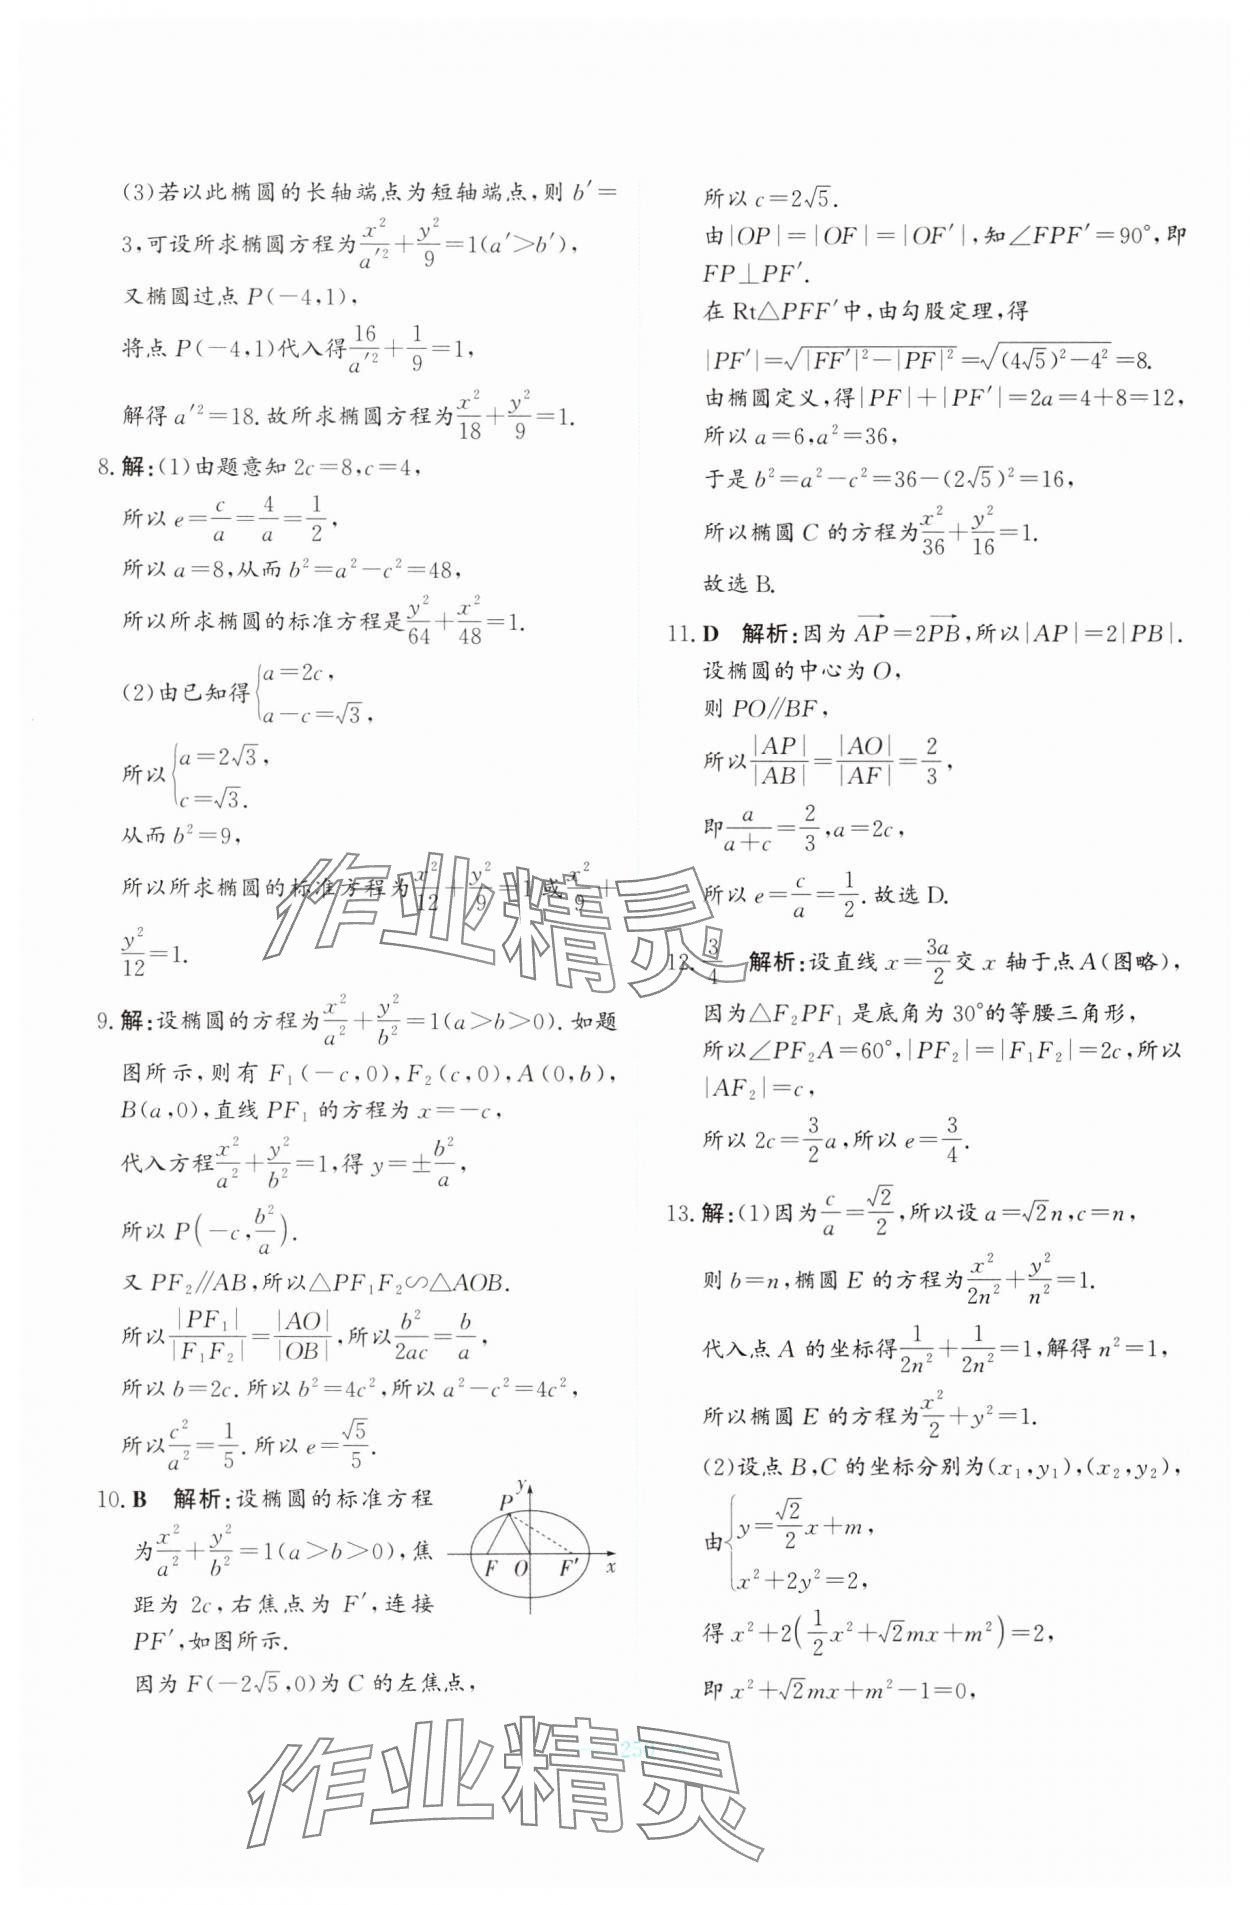 (3)若以此椭圆的长轴端点为短轴端点,则 b′=
3,可设所求椭圆方程为x²/a′²+y²/9=1(a′>b′),
又椭圆过点 P(-4,1),
将点 P(-4,1)代入得16/a′²+1/9=1,
解得 a′²=18.故所求椭圆方程为x²/18+y²/9=1.
8. 解:(1)由题意知 2c=8,c=4,
所以 e=c/a=4/a=1/2,
所以 a=8,从而 b²=a²-c²=48,
所以所求椭圆的标准方程是y²/64+x²/48=1.
(2)由已知得{a=2c,
a-c=√3,
所以{a=2√3,
c=√3.
从而 b²=9,
所以所求椭圆的标准方程为x²/12+y²/9=1 或x²/9+
y²/12=1.
9. 解:设椭圆的方程为x²/a²+y²/b²=1(a>b>0).如题
图所示,则有 F₁(-c,0),F₂(c,0),A(0,b),
B(a,0),直线 PF₁ 的方程为 x=-c,
代入方程x²/a²+y²/b²=1,得 y=±b²/a,
所以 P(-c,b²/a).
又 PF₂∥AB,所以△PF₁F₂∽△AOB.
所以|PF₁|/|F₁F₂|=|AO|/|OB|,所以b²/2ac=b/a,
所以 b=2c.所以 b²=4c²,所以 a²-c²=4c²,
所以c²/a²=1/5.所以 e=√5/5.
10. B 解析:设椭圆的标准方程
为x²/a²+y²/b²=1(a>b>0),焦
距为 2c,右焦点为 F′,连接
PF′,如图所示.
y
P
F O F′ x
因为 F(-2√5,0)为 C 的左焦点,
所以 c=2√5.
由|OP|=|OF|=|OF′|,知∠FPF′=90°,即
FP⊥PF′.
在 Rt△PFF′中,由勾股定理,得
|PF′|=√(|FF′|²-|PF|²)=√((4√5)²-4²)=8.
由椭圆定义,得|PF|+|PF′|=2a=4+8=12,
所以 a=6,a²=36,
于是 b²=a²-c²=36-(2√5)²=16,
所以椭圆 C 的方程为x²/36+y²/16=1.
故选 B.
11. D 解析:因为AP→=2PB→,所以|AP|=2|PB|.
设椭圆的中心为 O,
则 PO∥BF,
所以|AP|/|AB|=|AO|/|AF|=2/3,
即a/(a+c)=2/3,a=2c,
所以 e=c/a=1/2.故选 D.
12. 3/4 解析:设直线 x=3a/2交 x 轴于点 A(图略),
因为△F₂PF₁ 是底角为 30°的等腰三角形,
所以∠PF₂A=60°,|PF₂|=|F₁F₂|=2c,所以
|AF₂|=c,
所以 2c=3/2a,所以 e=3/4.
13. 解:(1)因为c/a=√2/2,所以设 a=√2n,c=n,
则 b=n,椭圆 E 的方程为x²/2n²+y²/n²=1.
代入点 A 的坐标得1/2n²+1/2n²=1,解得 n²=1,
所以椭圆 E 的方程为x²/2+y²=1.
(2)设点 B,C 的坐标分别为(x₁,y₁),(x₂,y₂),
由{y=√2/2x+m,
x²+2y²=2,
得 x²+2(1/2x²+√2mx+m²)=2,
即 x²+√2mx+m²-1=0,
作业精灵
作业精灵